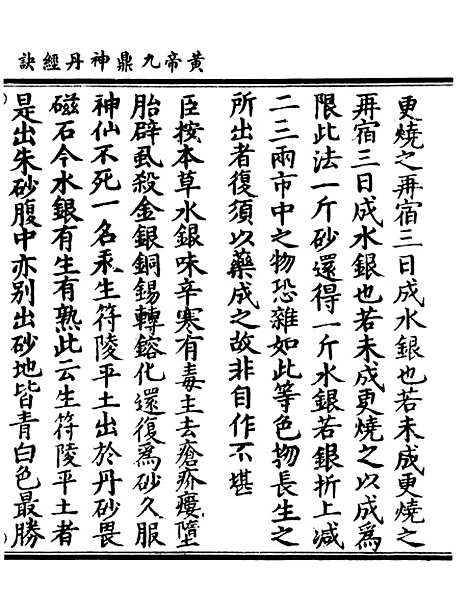 黃帝九鼎神丹經訣
更燒之再宿三日成水銀也若未成更燒之
再宿三日成水銀也若未成更燒之以成爲
限此法一斤砂還得一斤水銀若銀折上減
二三兩市中之物恐雜如此等色物長生之
所出者復須以藥成之故非自作不堪
臣按本草水銀味辛寒有毒主去瘡疥癭墮
胎辟虱殺金銀銅錫轉鎔化還復爲砂久服
神仙不死一名汞生符陵平土出於丹砂畏
磁石今水銀有生有熟此云生符陵平土者
是出朱砂腹中亦别出砂地皆青白色最勝